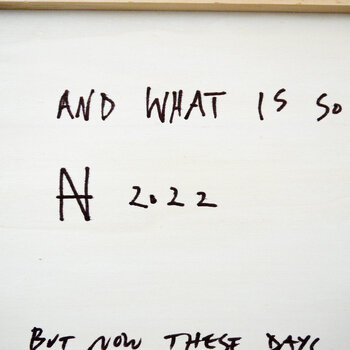 AND WHAT IS SO
₦ 2022
BUT NOW THESE DAYS